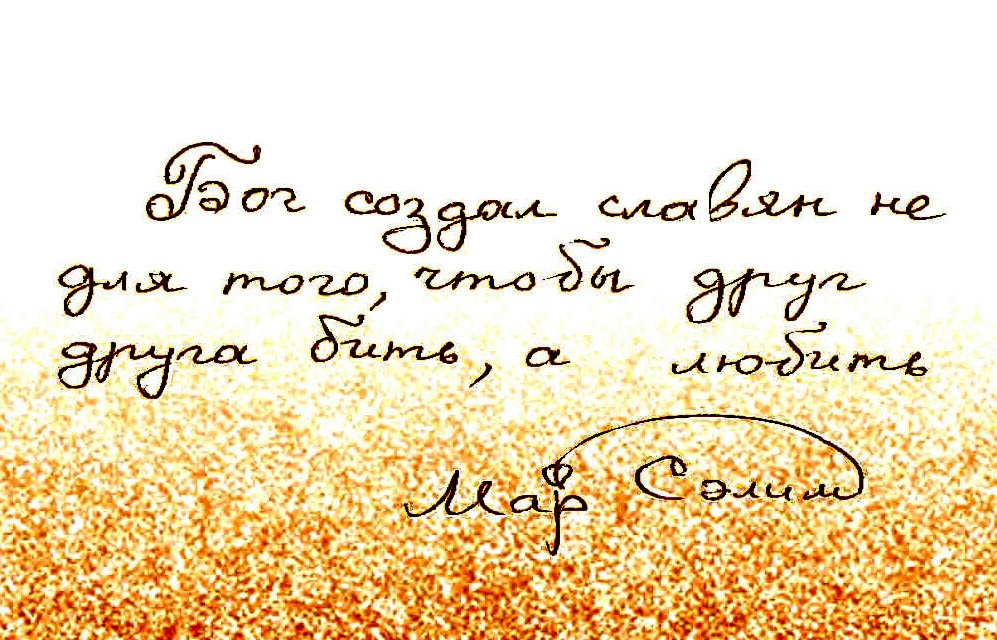 Бог создал славян не
для того, чтобы друг
друга бить, а любить
Мар Сэлим